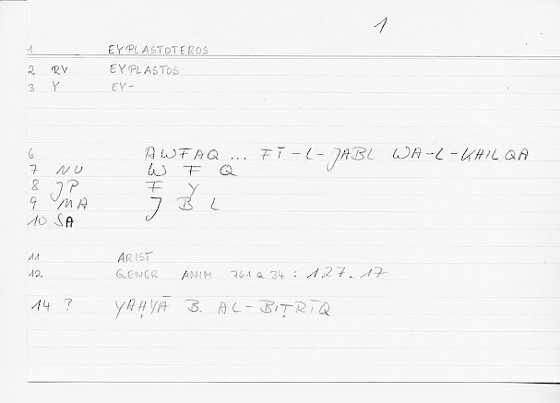 1
1 EYPLASTOTEROS
2 RV EYPLASTOS
3 Y EY-
6 AWFAQ ... FĪ-L-JABL WA-L-KHILQA
7 NU W F Q
8 JP F Y
9 MA J B L
10 SA
11 ARIST
12 GENER ANIM 761a34: 127.17
14 ? YAḤYĀ B. AL-BIṬRĪQ